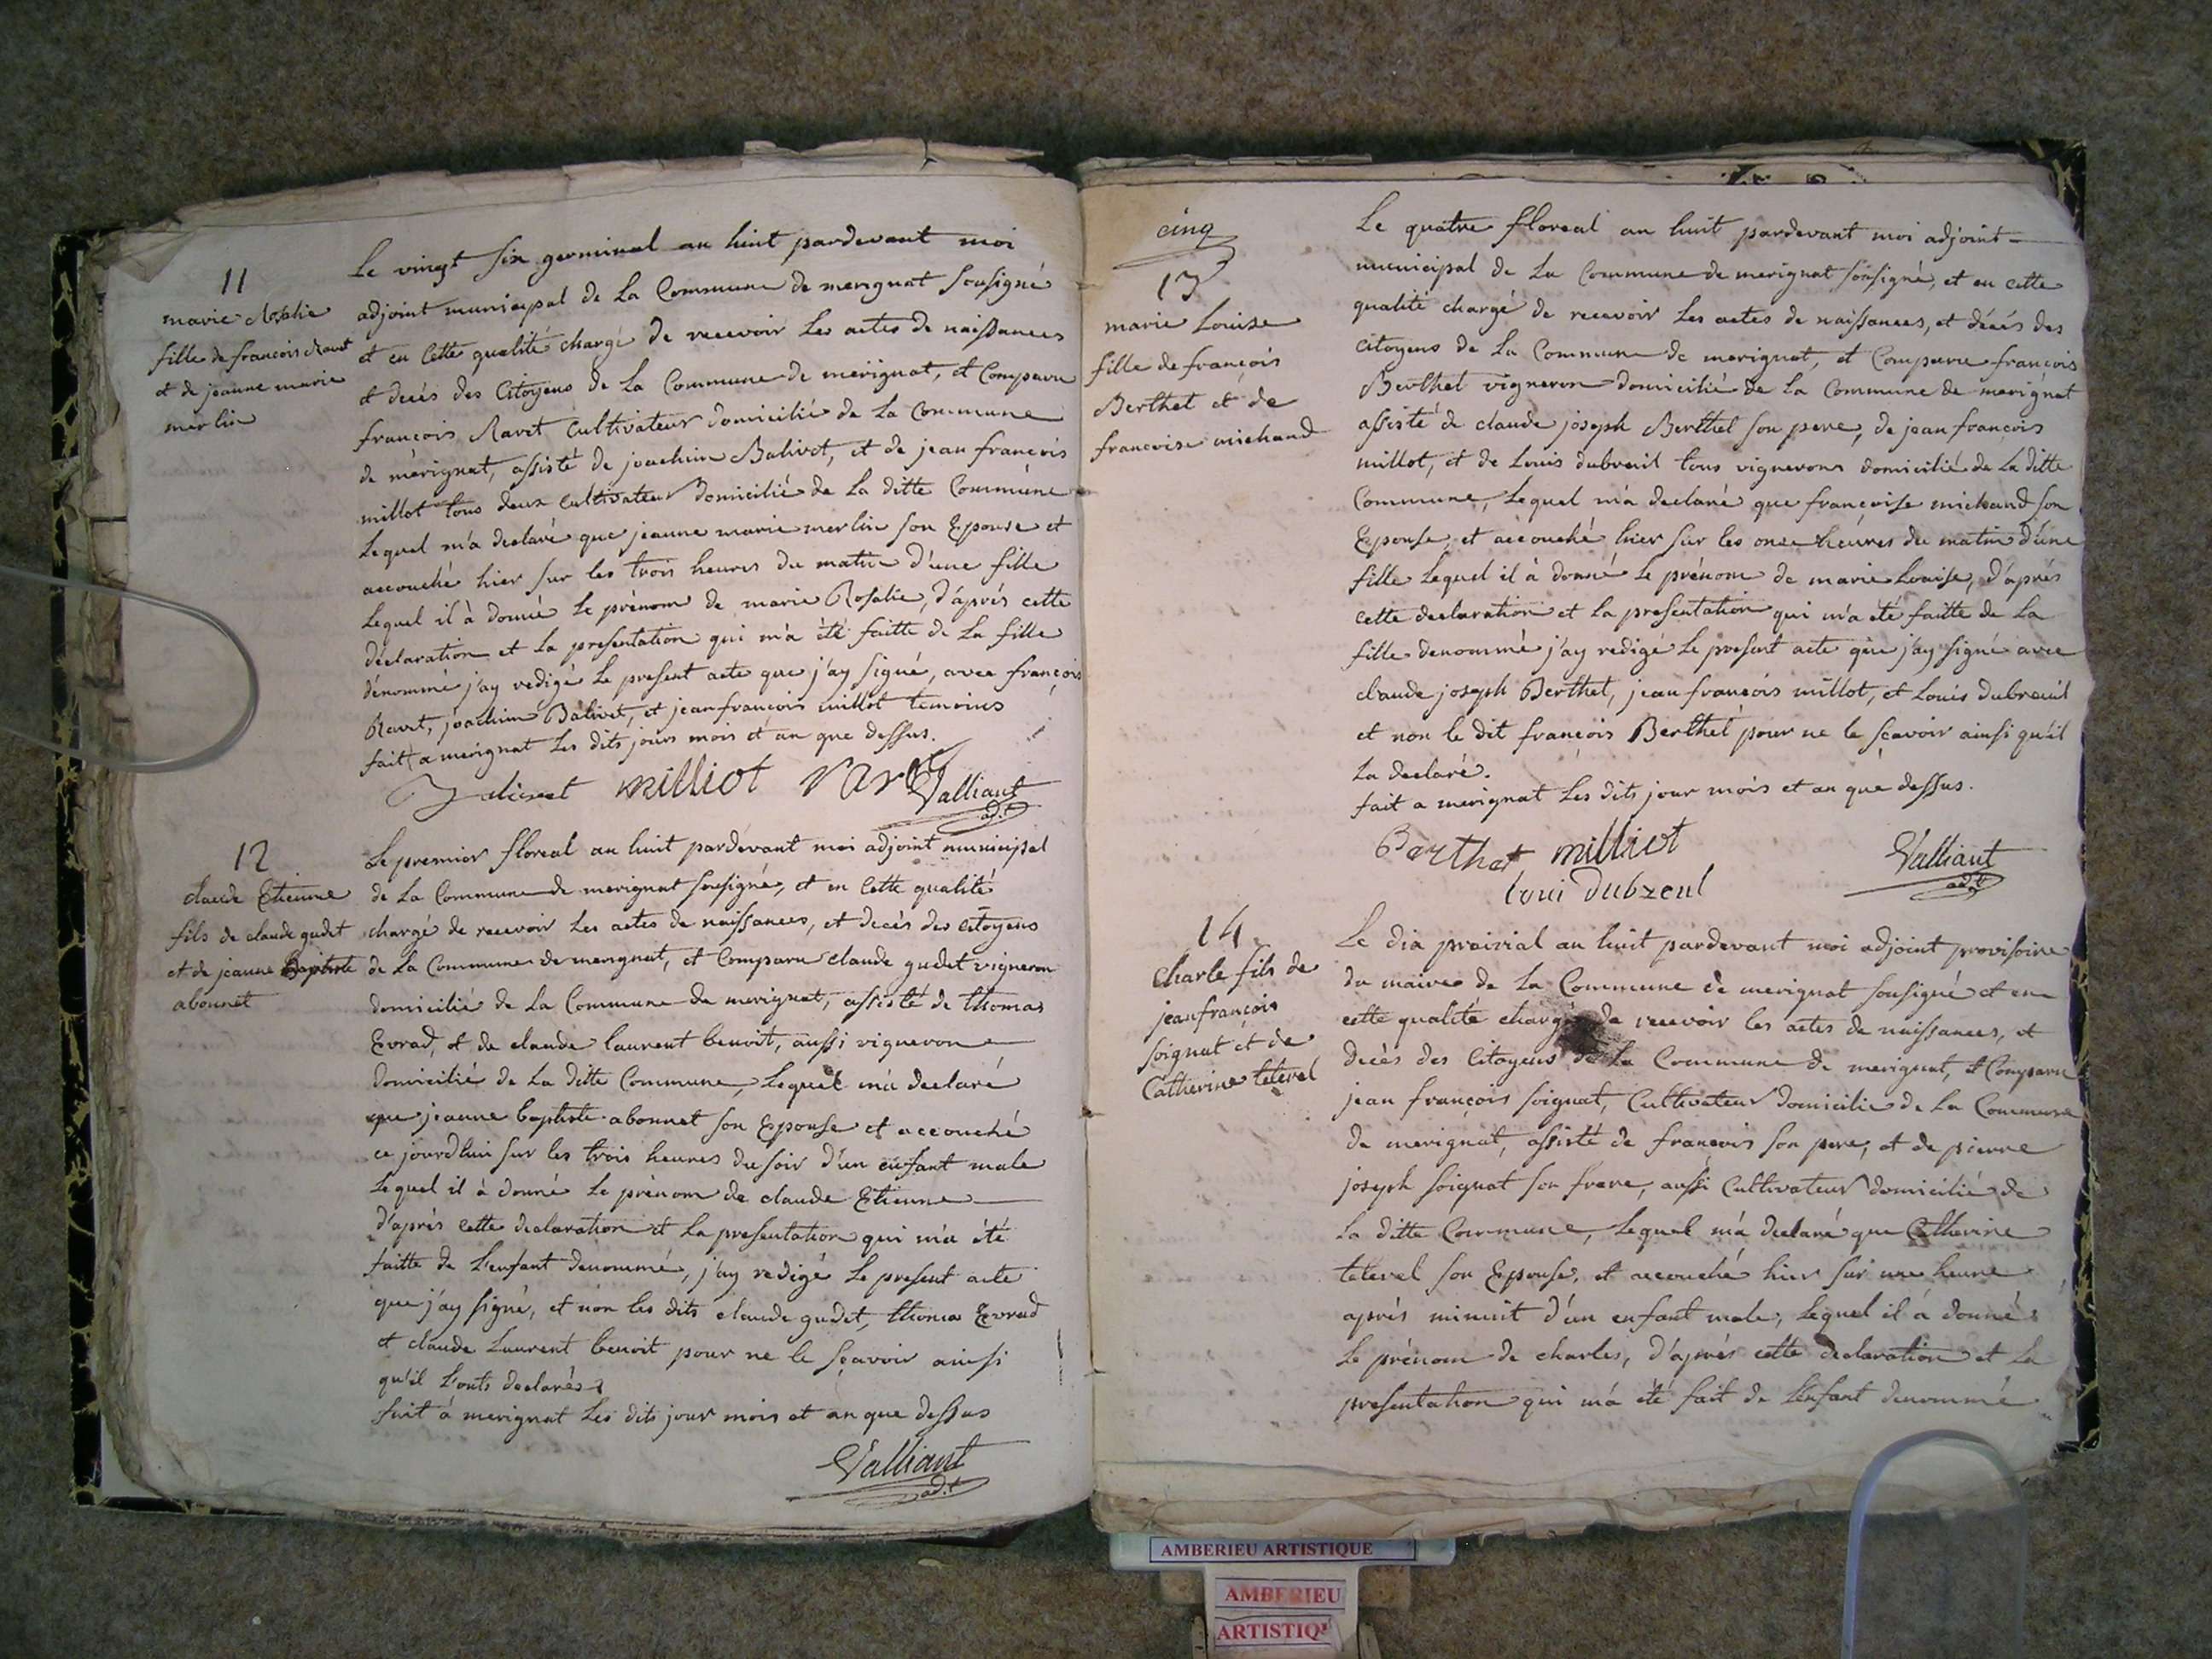 11
marie
fille de francois Ravet
et de jeanne marie
merlin
Le vingt six germinal an huit pardevant moi
adjoint municipal de la Commune de merignat Sousigné
et en Cette qualité chargé de recevoir les actes de naissances
et decés des Citoyens de La Commune de merignat, et Comparu
françois Ravet Cultivateur domicilié de la Commune
de mérignat, assisté de joachim Balivet, et de jean françois
millot tous deux cultivateur domicilié de la ditte Commune
Lequel m'a declaré que jeanne marie merlin son Epouse et
accouché hier sur les trois heures du matin d'une fille
Lequel il à donné le prénom de marie Rosalie, d'aprés cette
déclaration et la presentation qui m'a été faitte de la fille
dénommé j'ay redigé le present acte que j'ay signé, avec françois
Ravet, joachim Balivet, et jean françois millot temoins
fait a merignat les dits jours mois et an que dessus.
Balivet milliot ravet Valliant
adt
12
claude Etienne
fils de claude gudet
et de jeanne Baptiste
abonnet
Le premier floreal an huit pardevant moi adjoint municipal
de la Commune de merignat sousigné, et en Cette qualité
chargé de recevoir les actes de naissances, et decés des citoyens
de la Commune de merignat, et Comparu claude gudet vigneron
domicilié de la Commune de merignat, assisté de thomas
Evrad, et de claude laurent benoit, aussi vigneron
domicilié de la ditte Commune, Lequel m'a declaré
que jeanne baptiste abonnet son Epouse et accouché
ce jourdhui sur les trois heures du soir d'un enfant male
Lequel il à donné le prénom de claude Etienne
d'aprés cette declaration et la presentation qui m'a été
faitte de L'enfant denommé, j'ay redigé le present acte
que j'ay signé, et non les dits claude gudet, thoma Evrad
et claude Laurent benoit pour ne le sçavoir ainsi
qu'il l'onts declarés
fait à merignat les dits jour mois et an que dessus
Valliant
adt
cinq
13
marie Louise
fille de françois
Berthet et de
francoise michaud
Le quatre floreal an huit pardevant moi adjoint
municipal de La Commune de merignat sousigné, et en cette
qualité chargé de recevoir les actes de naissances, et décés des
citoyens de La Commune de merignat, et Comparu françois
Berthet vigneron domicilié de la Commune de merignat
assisté de claude joseph Berthet son pere, de jean françois
millot, et de Louis dubreuil tous vignerons domicilié de La ditte
Commune, Lequel m'a declaré que françoise michaud son
Epouse, et accouché hier sur les onze heures du matin d'une
fille Lequel il à donné le prénom de marie Louise, d'aprés
cette declaration et la presentation qui m'a été faitte de La
fille denommé j'ay redigé le present acte que j'ay signé avec
claude joseph Berthet, jean françois millot, et Louis dubreuil
et non le dit françois Berthet pour ne le sçavoir ainsi qu'il
la declaré.
fait a merignat les dits jour mois et an que dessus.
Berthet milliot
Valliant
adt
loui dubzeul
14
Charle fils de
jean françois
soignat et de
Catherine teteval
Le dix prairial an huit pardevant moi adjoint provisoire
du maire de la Commune de merignat sousigné et en
cette qualité chargé de recevoir les actes de naissances, et
decès des Citoyens de la Commune de merignat, et Comparu
jean françois soignat, Cultivateur domicilié de la Commune
de merignat, assisté de françois son pere, et de pierre
joseph soignat son frere, aussi Cultivateur domicilié de
la ditte Commune, Lequel m'a declaré que Catherine
teteval son Epouse, et accouché hier sur une heure
aprés minuit d'un enfant male, Lequel il à donné
le prénom de charles, d'aprés cette declaration et La
presentation qui m'a été fait de L'enfant denommé
AMBERIEU ARTISTIQUE
AMBERIEU
ARTISTIQ